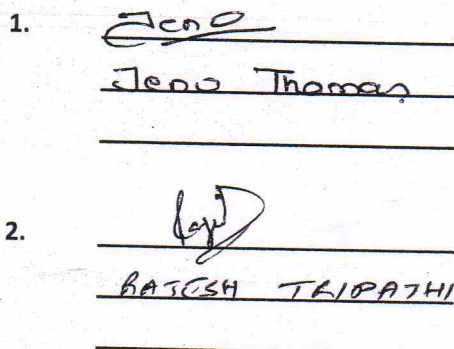 1.
Jeno
Jeno Thomas
2.
RAJESH TRIPATHI